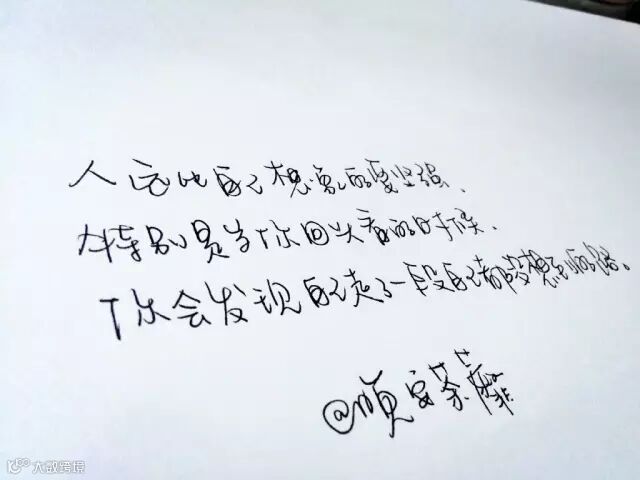 人远比自己想象的要坚强、
特别是当你回头看的时候、
你会发现自己走了一段自己都没想到的路。
@顺安茶靡
大数跨境